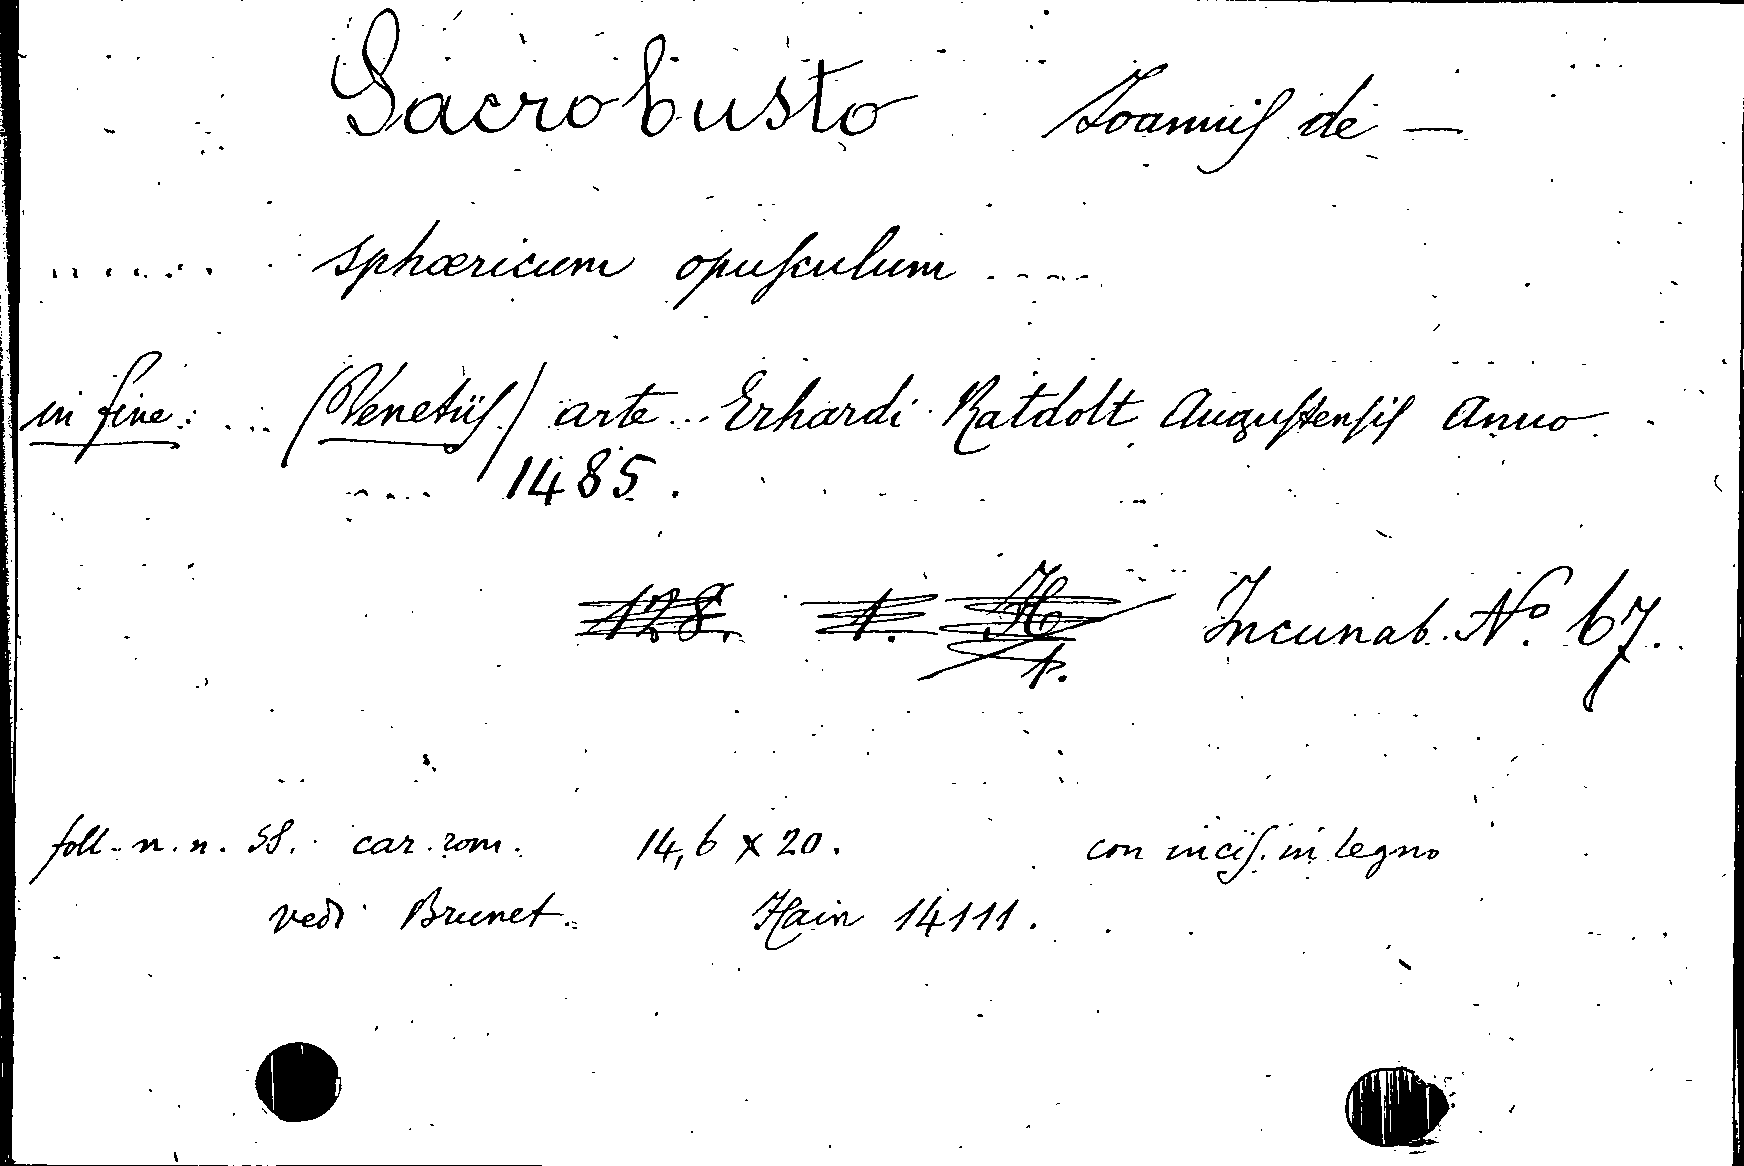 Sacrobusto Joannis de —
...... sphæricum opusculum .....
in fine: ... (Venetiis.) arte ... Erhardi Ratdolt Augustensis Anno
.... 1485.
128. 1. H/1. Incunab. Nº 67.
foll. n. n. 58. car. rom. 14,6 x 20. con incis. in legno
vedi Brunet. Hain 14111.